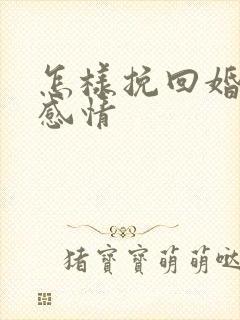 怎样挽回婚
感情
猪寶寶萌萌哒